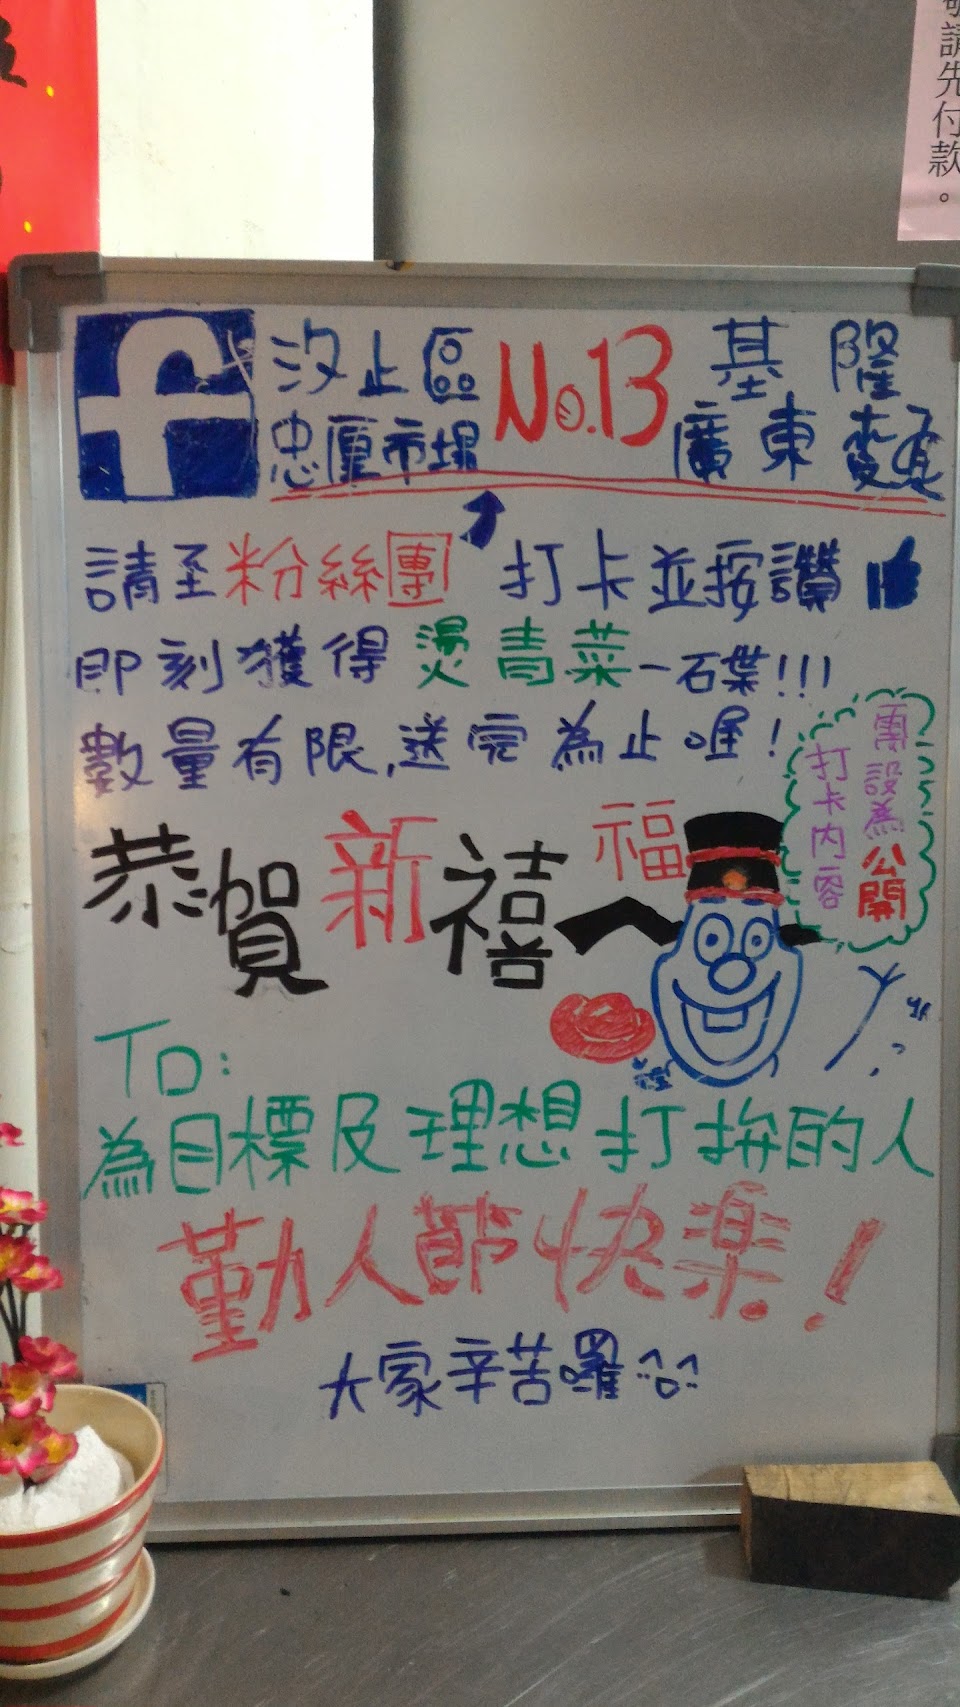 敬請先付款。
f 汐止區 No.13 基隆
忠厚市場 廣東麵
請至粉絲團 打卡並按讚
即刻獲得 燙青菜一碟!!!
數量有限,送完為止喔!
需設為公開
打卡內容
恭賀新禧
福
To:
為目標及理想打拚的人
勤人節快樂!
大家辛苦囉